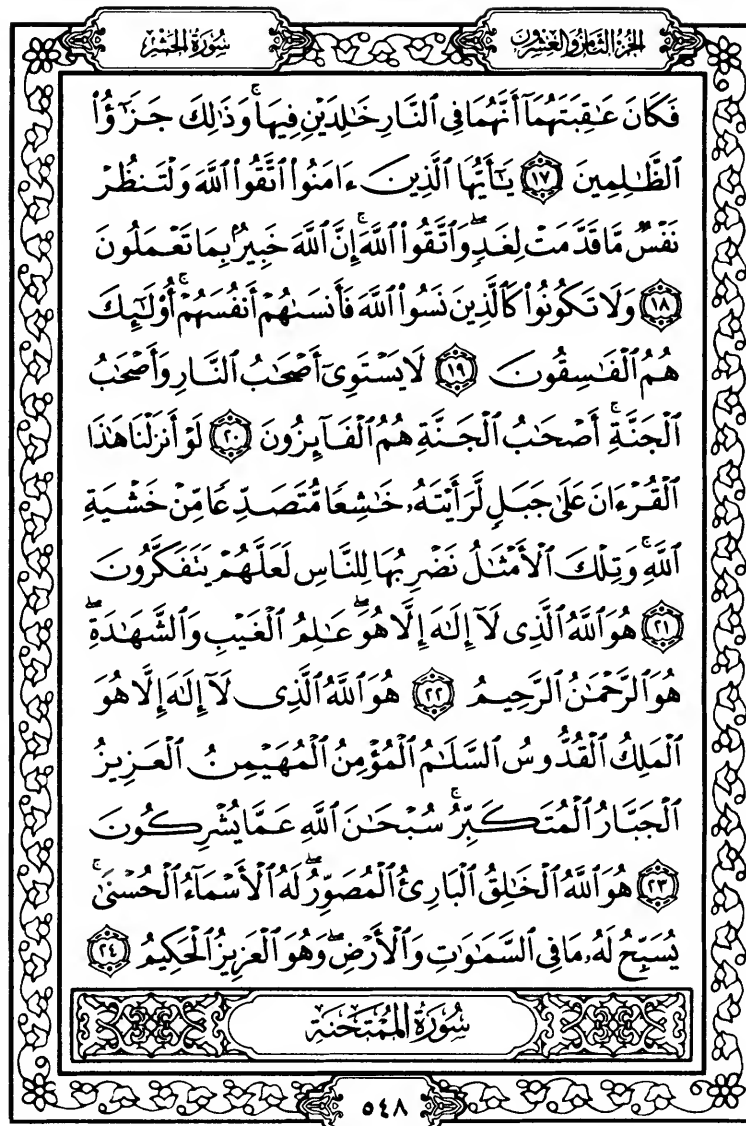 الجزء الثامن والعشرون
سورة الحشر
فَكَانَ عَٰقِبَتَهُمَآ أَنَّهُمَا فِى ٱلنَّارِ خَٰلِدَيْنِ فِيهَا ۚ وَذَٰلِكَ جَزَٰٓؤُا۟
ٱلظَّٰلِمِينَ ١٧ يَٰٓأَيُّهَا ٱلَّذِينَ ءَامَنُوا۟ ٱتَّقُوا۟ ٱللَّهَ وَلْتَنظُرْ
نَفْسٌ مَّا قَدَّمَتْ لِغَدٍ ۖ وَٱتَّقُوا۟ ٱللَّهَ ۚ إِنَّ ٱللَّهَ خَبِيرٌۢ بِمَا تَعْمَلُونَ
١٨ وَلَا تَكُونُوا۟ كَٱلَّذِينَ نَسُوا۟ ٱللَّهَ فَأَنسَىٰهُمْ أَنفُسَهُمْ ۚ أُو۟لَٰٓئِكَ
هُمُ ٱلْفَٰسِقُونَ ١٩ لَا يَسْتَوِىٓ أَصْحَٰبُ ٱلنَّارِ وَأَصْحَٰبُ
ٱلْجَنَّةِ ۚ أَصْحَٰبُ ٱلْجَنَّةِ هُمُ ٱلْفَآئِزُونَ ٢٠ لَوْ أَنزَلْنَا هَٰذَا
ٱلْقُرْءَانَ عَلَىٰ جَبَلٍ لَّرَأَيْتَهُۥ خَٰشِعًا مُّتَصَدِّعًا مِّنْ خَشْيَةِ
ٱللَّهِ ۚ وَتِلْكَ ٱلْأَمْثَٰلُ نَضْرِبُهَا لِلنَّاسِ لَعَلَّهُمْ يَتَفَكَّرُونَ
٢١ هُوَ ٱللَّهُ ٱلَّذِى لَآ إِلَٰهَ إِلَّا هُوَ ۖ عَٰلِمُ ٱلْغَيْبِ وَٱلشَّهَٰدَةِ ۖ
هُوَ ٱلرَّحْمَٰنُ ٱلرَّحِيمُ ٢٢ هُوَ ٱللَّهُ ٱلَّذِى لَآ إِلَٰهَ إِلَّا هُوَ
ٱلْمَلِكُ ٱلْقُدُّوسُ ٱلسَّلَٰمُ ٱلْمُؤْمِنُ ٱلْمُهَيْمِنُ ٱلْعَزِيزُ
ٱلْجَبَّارُ ٱلْمُتَكَبِّرُ ۚ سُبْحَٰنَ ٱللَّهِ عَمَّا يُشْرِكُونَ
٢٣ هُوَ ٱللَّهُ ٱلْخَٰلِقُ ٱلْبَارِئُ ٱلْمُصَوِّرُ ۖ لَهُ ٱلْأَسْمَآءُ ٱلْحُسْنَىٰ ۚ
يُسَبِّحُ لَهُۥ مَا فِى ٱلسَّمَٰوَٰتِ وَٱلْأَرْضِ ۖ وَهُوَ ٱلْعَزِيزُ ٱلْحَكِيمُ ٢٤
سُورَةُ المُمْتَحَنَةِ
٥٤٨